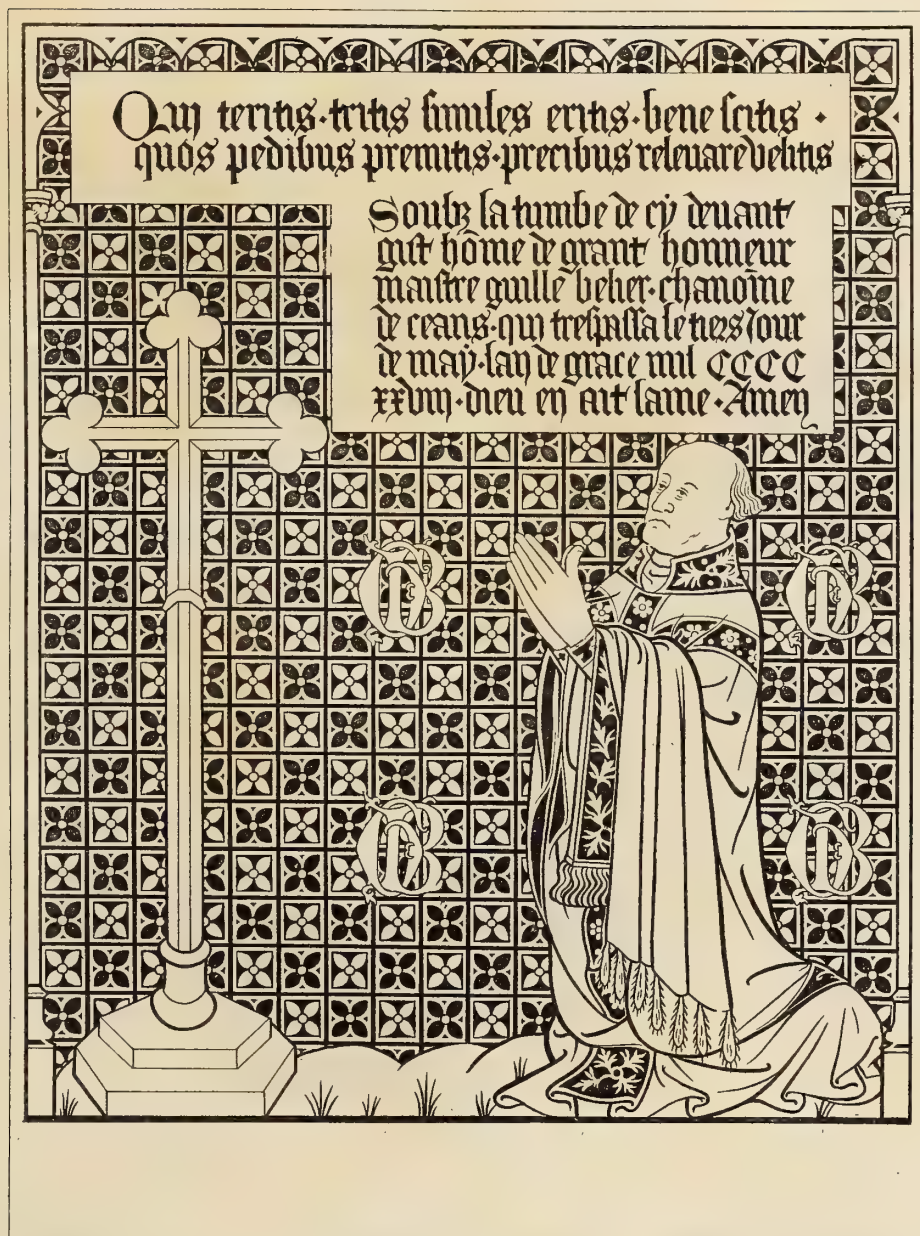 Qui teritis · tritis similes eritis · bene scitis ·
quos pedibus premitis · precibus releuare velitis
Soubz la tumbe de cy deuant
gist hōme de grant honneur
maistre guillē belier · chanoine
de ceans · qui trespassa le tiers Jour
de may · lan de grace mil CCCC
xxviii · dieu en ait lame · Amen
GB
GB
GB
GB